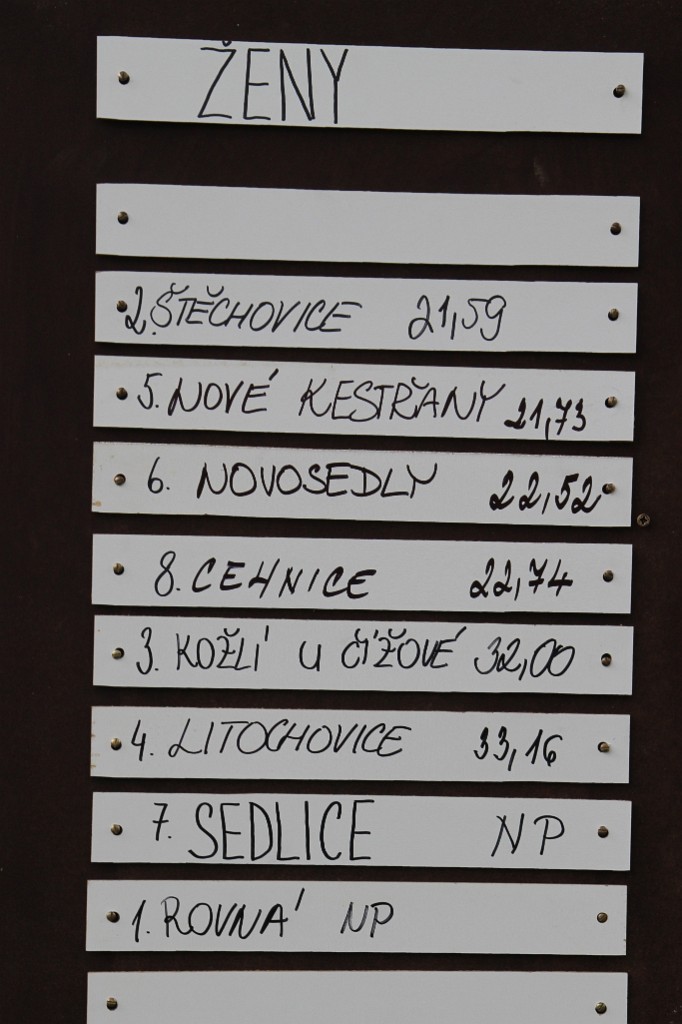 ŽENY
2. ŠTĚCHOVICE 21,59
5. NOVÉ KESTŘANY 21,73
6. NOVOSEDLY 22,52
8. CEHNICE 22,74
3. KOŽLÍ U ČÍŽOVÉ 32,00
4. LITOCHOVICE 33,16
7. SEDLICE NP
1. ROVNÁ NP